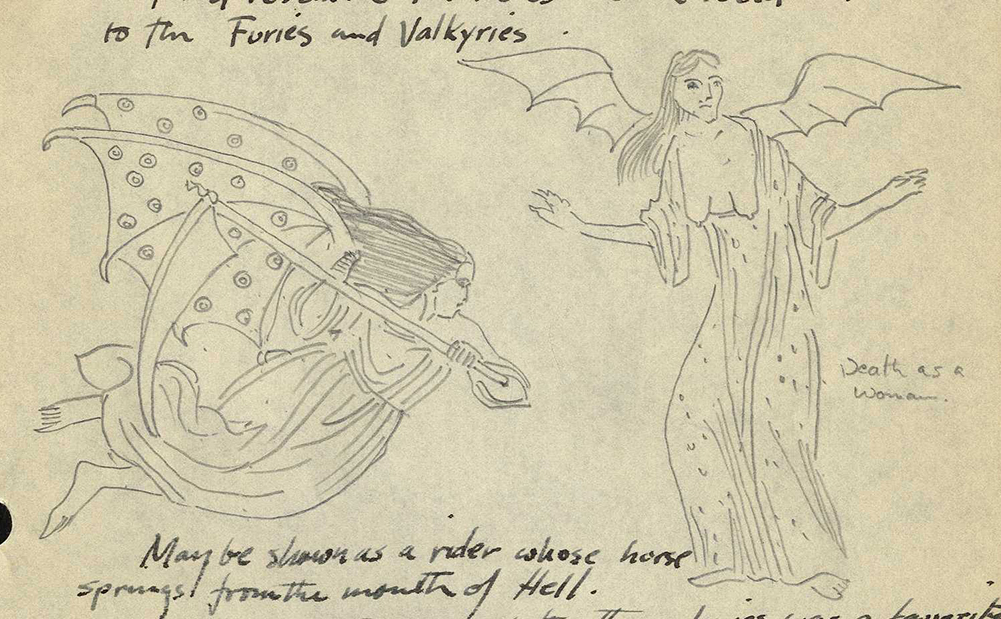 to the Furies and Valkyries .
Death as a
Woman.
May be shown as a rider whose horse
springs from the mouth of Hell.
was a favorite